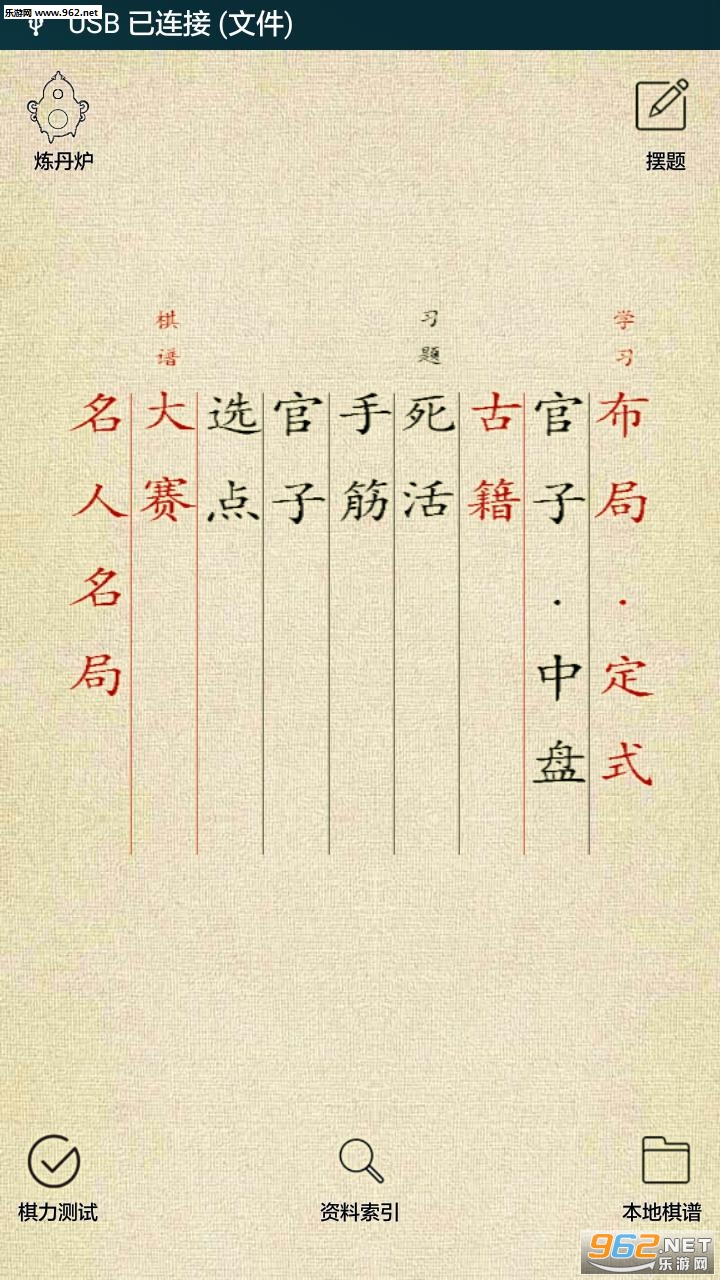 乐游网 www.962.net
USB 已连接 (文件)
炼丹炉
摆题
学习
习题
棋谱
布局·定式
官子·中盘
古籍
死活
手筋
官子
选点
大赛
名人名局
棋力测试
资料索引
本地棋谱
962.NET
乐游网